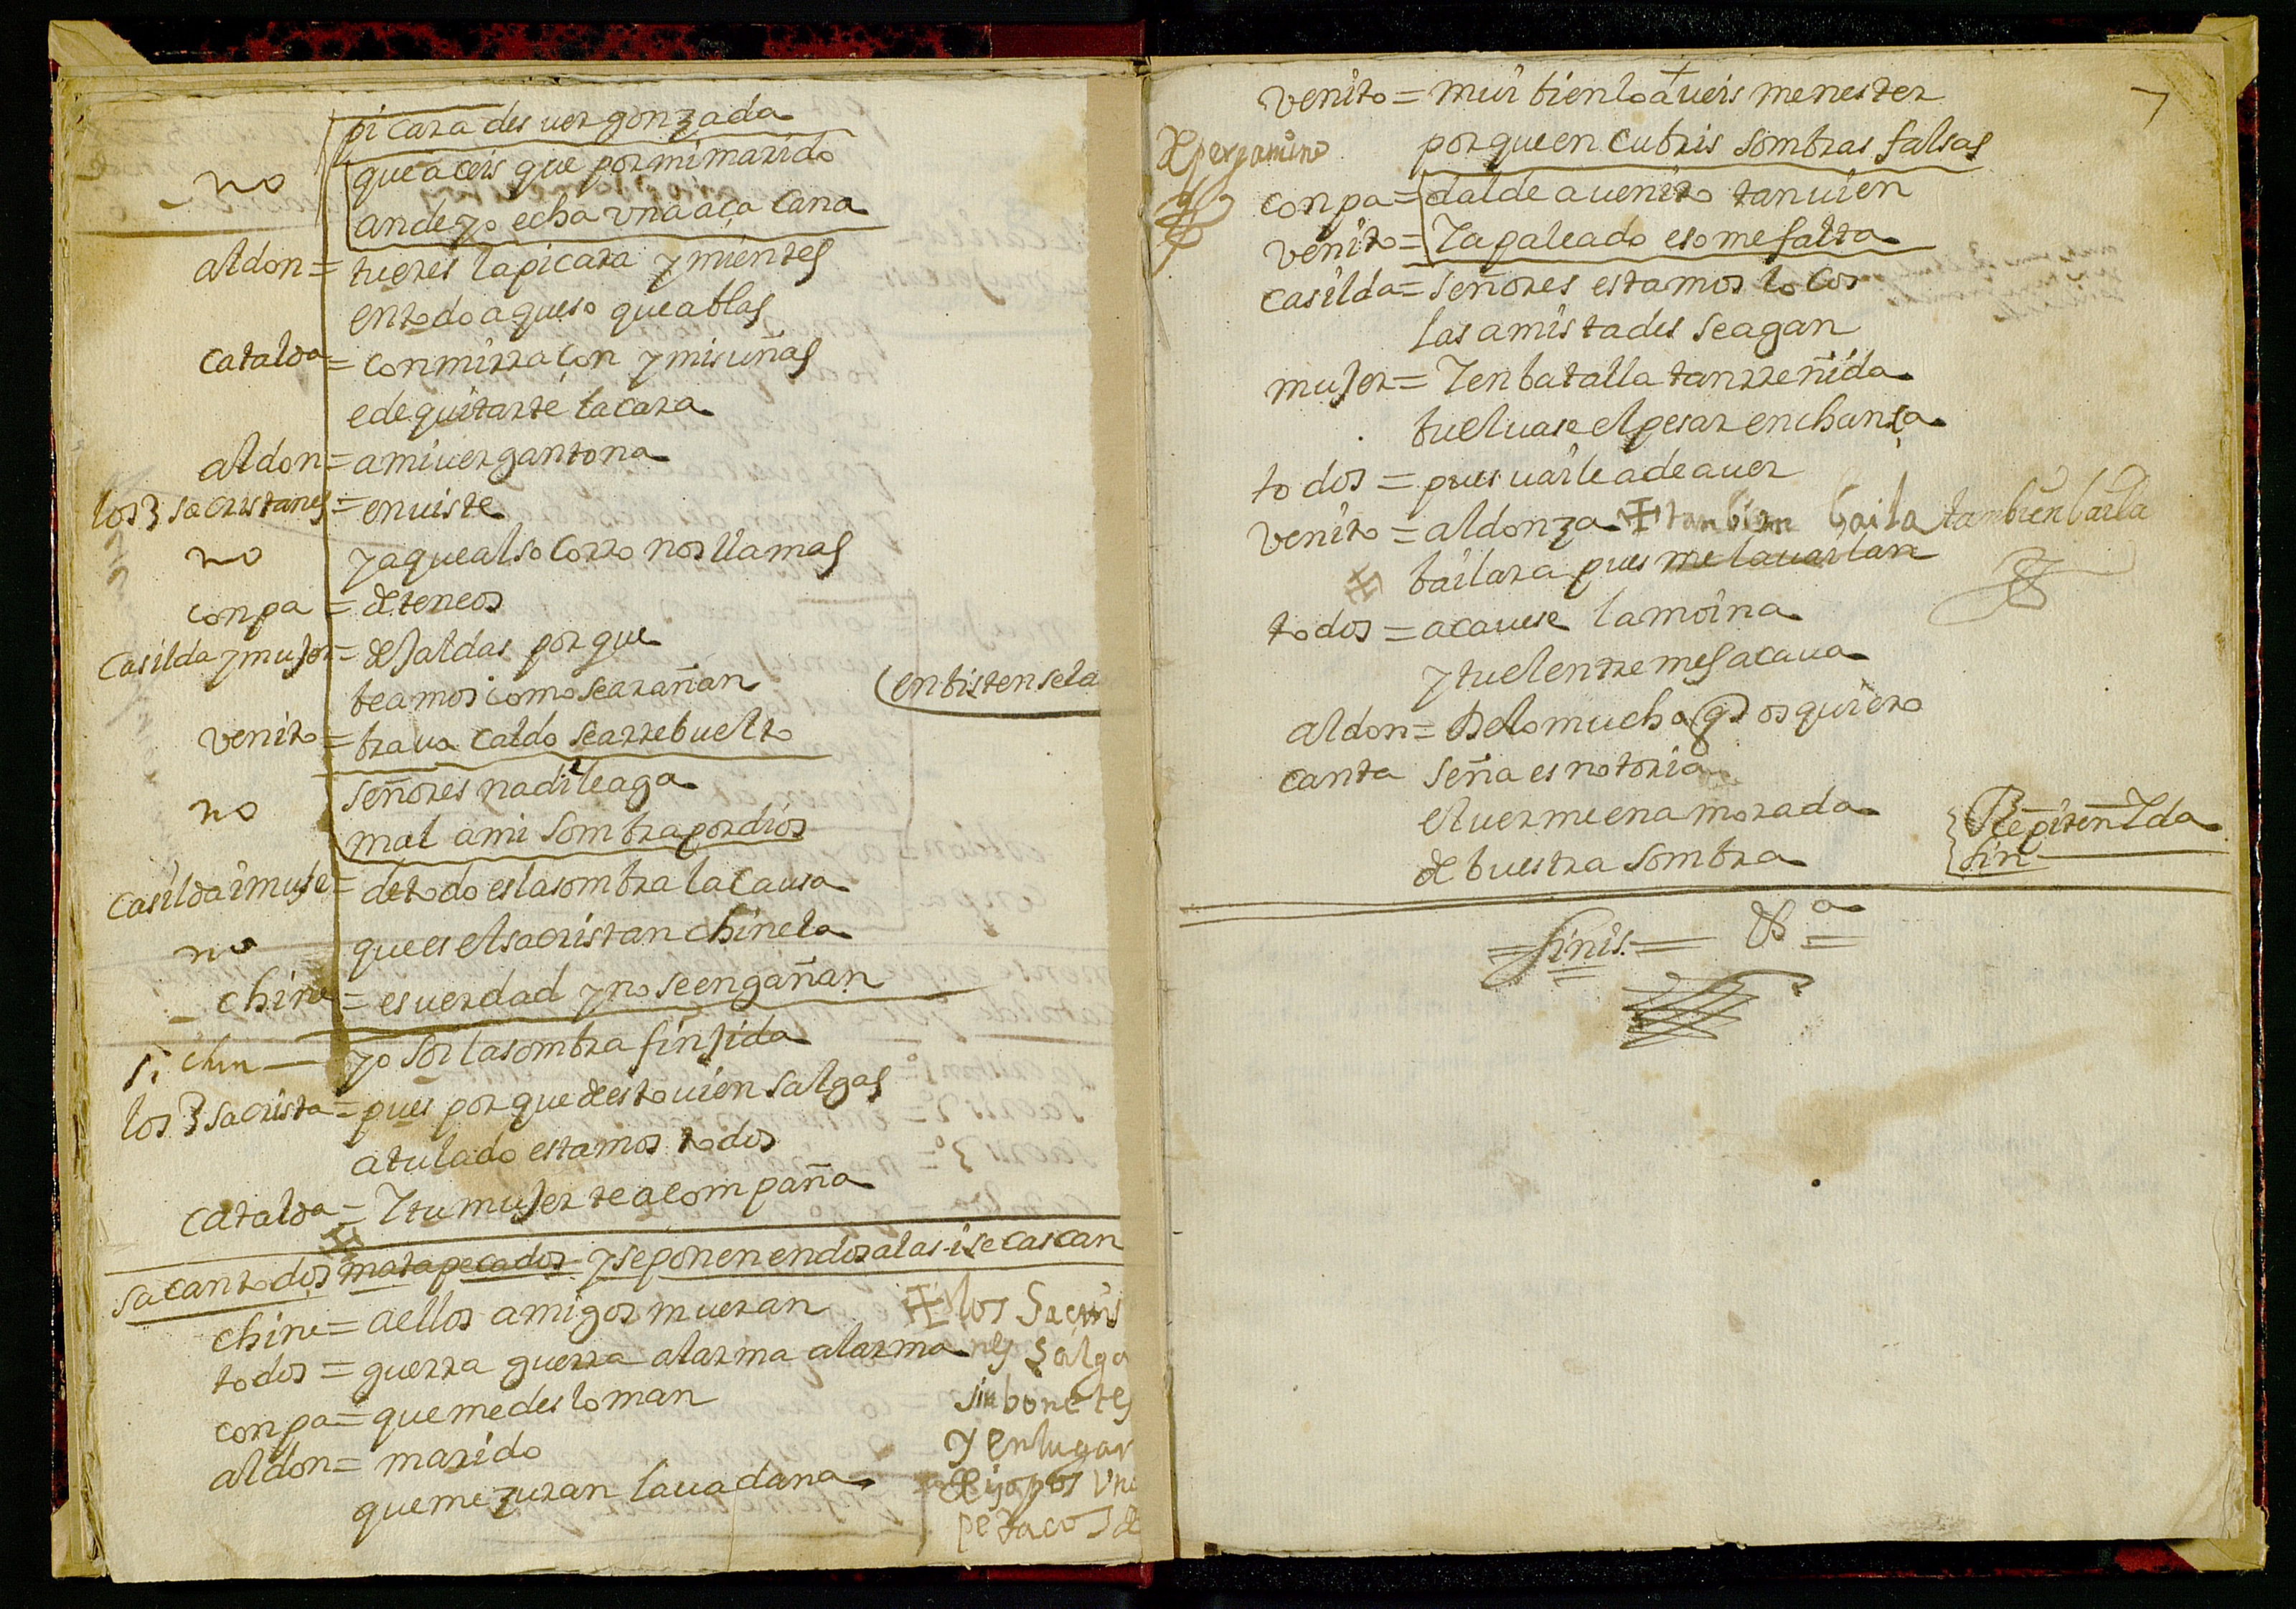 picara desuergonzada
no
que aceis que por mi marido
ande yo echa vna açacana
aldon = tu eres la picara y mientes
en todo aqueso que ablas
catalda = con mi rraçon y mis uñas
e de quitarte la cara
aldon = a mi uergantona
los 3 sacristanes = enuiste
no ya que al socorro nos llamas
conpa = deteneos
casilda y mujer = dejaldas porque
beamos como se arañan
(enbistense la
venito = braua caldo se a rrebuelto
no
señores nadi le aga
mal a mi sombra por dios
casilda i muje = de todo es la sombra la causa
no que es el sacristan chinela
chine = es uerdad y no se engañan
si chin — yo soi la sombra finjida
los 3 sacrista = pues porque de esto uien salgas
a tu lado estamos todos
catalda = I tu mujer te acompaña
sacan todos matapecados y se ponen en dos alas i se cascan
chine = a ellos amigos mueran
todos = guerra guerra al arma al arma
conpa = que me desloman
aldon = marido
que me zuran la uadana
los sacris
nes salga
sin bonetes
y en lugar
de ysopos vno
pedaços de
7
venito = mui bien lo aueis menester
porque encubris sombras falsas
de pergamino
conpa = dalde a uenito tanuien
venito = I apaleado eso me falta
casilda = señores estamos locos
las amistades se agan
mujer = I en batalla tan rreñida
bueluase el pesar en chança
todos = pues uaile a de auer
venito = aldonza tanbien baila tanbien baila
bailara pues me la uailan
todos = acauese la moina
y tu el entremes acaua
aldon = De lo mucho q os quiero
canta seña es notoria
el uerme enamorada
de buestra sombra
Repiten Ida
fin
= finis. =